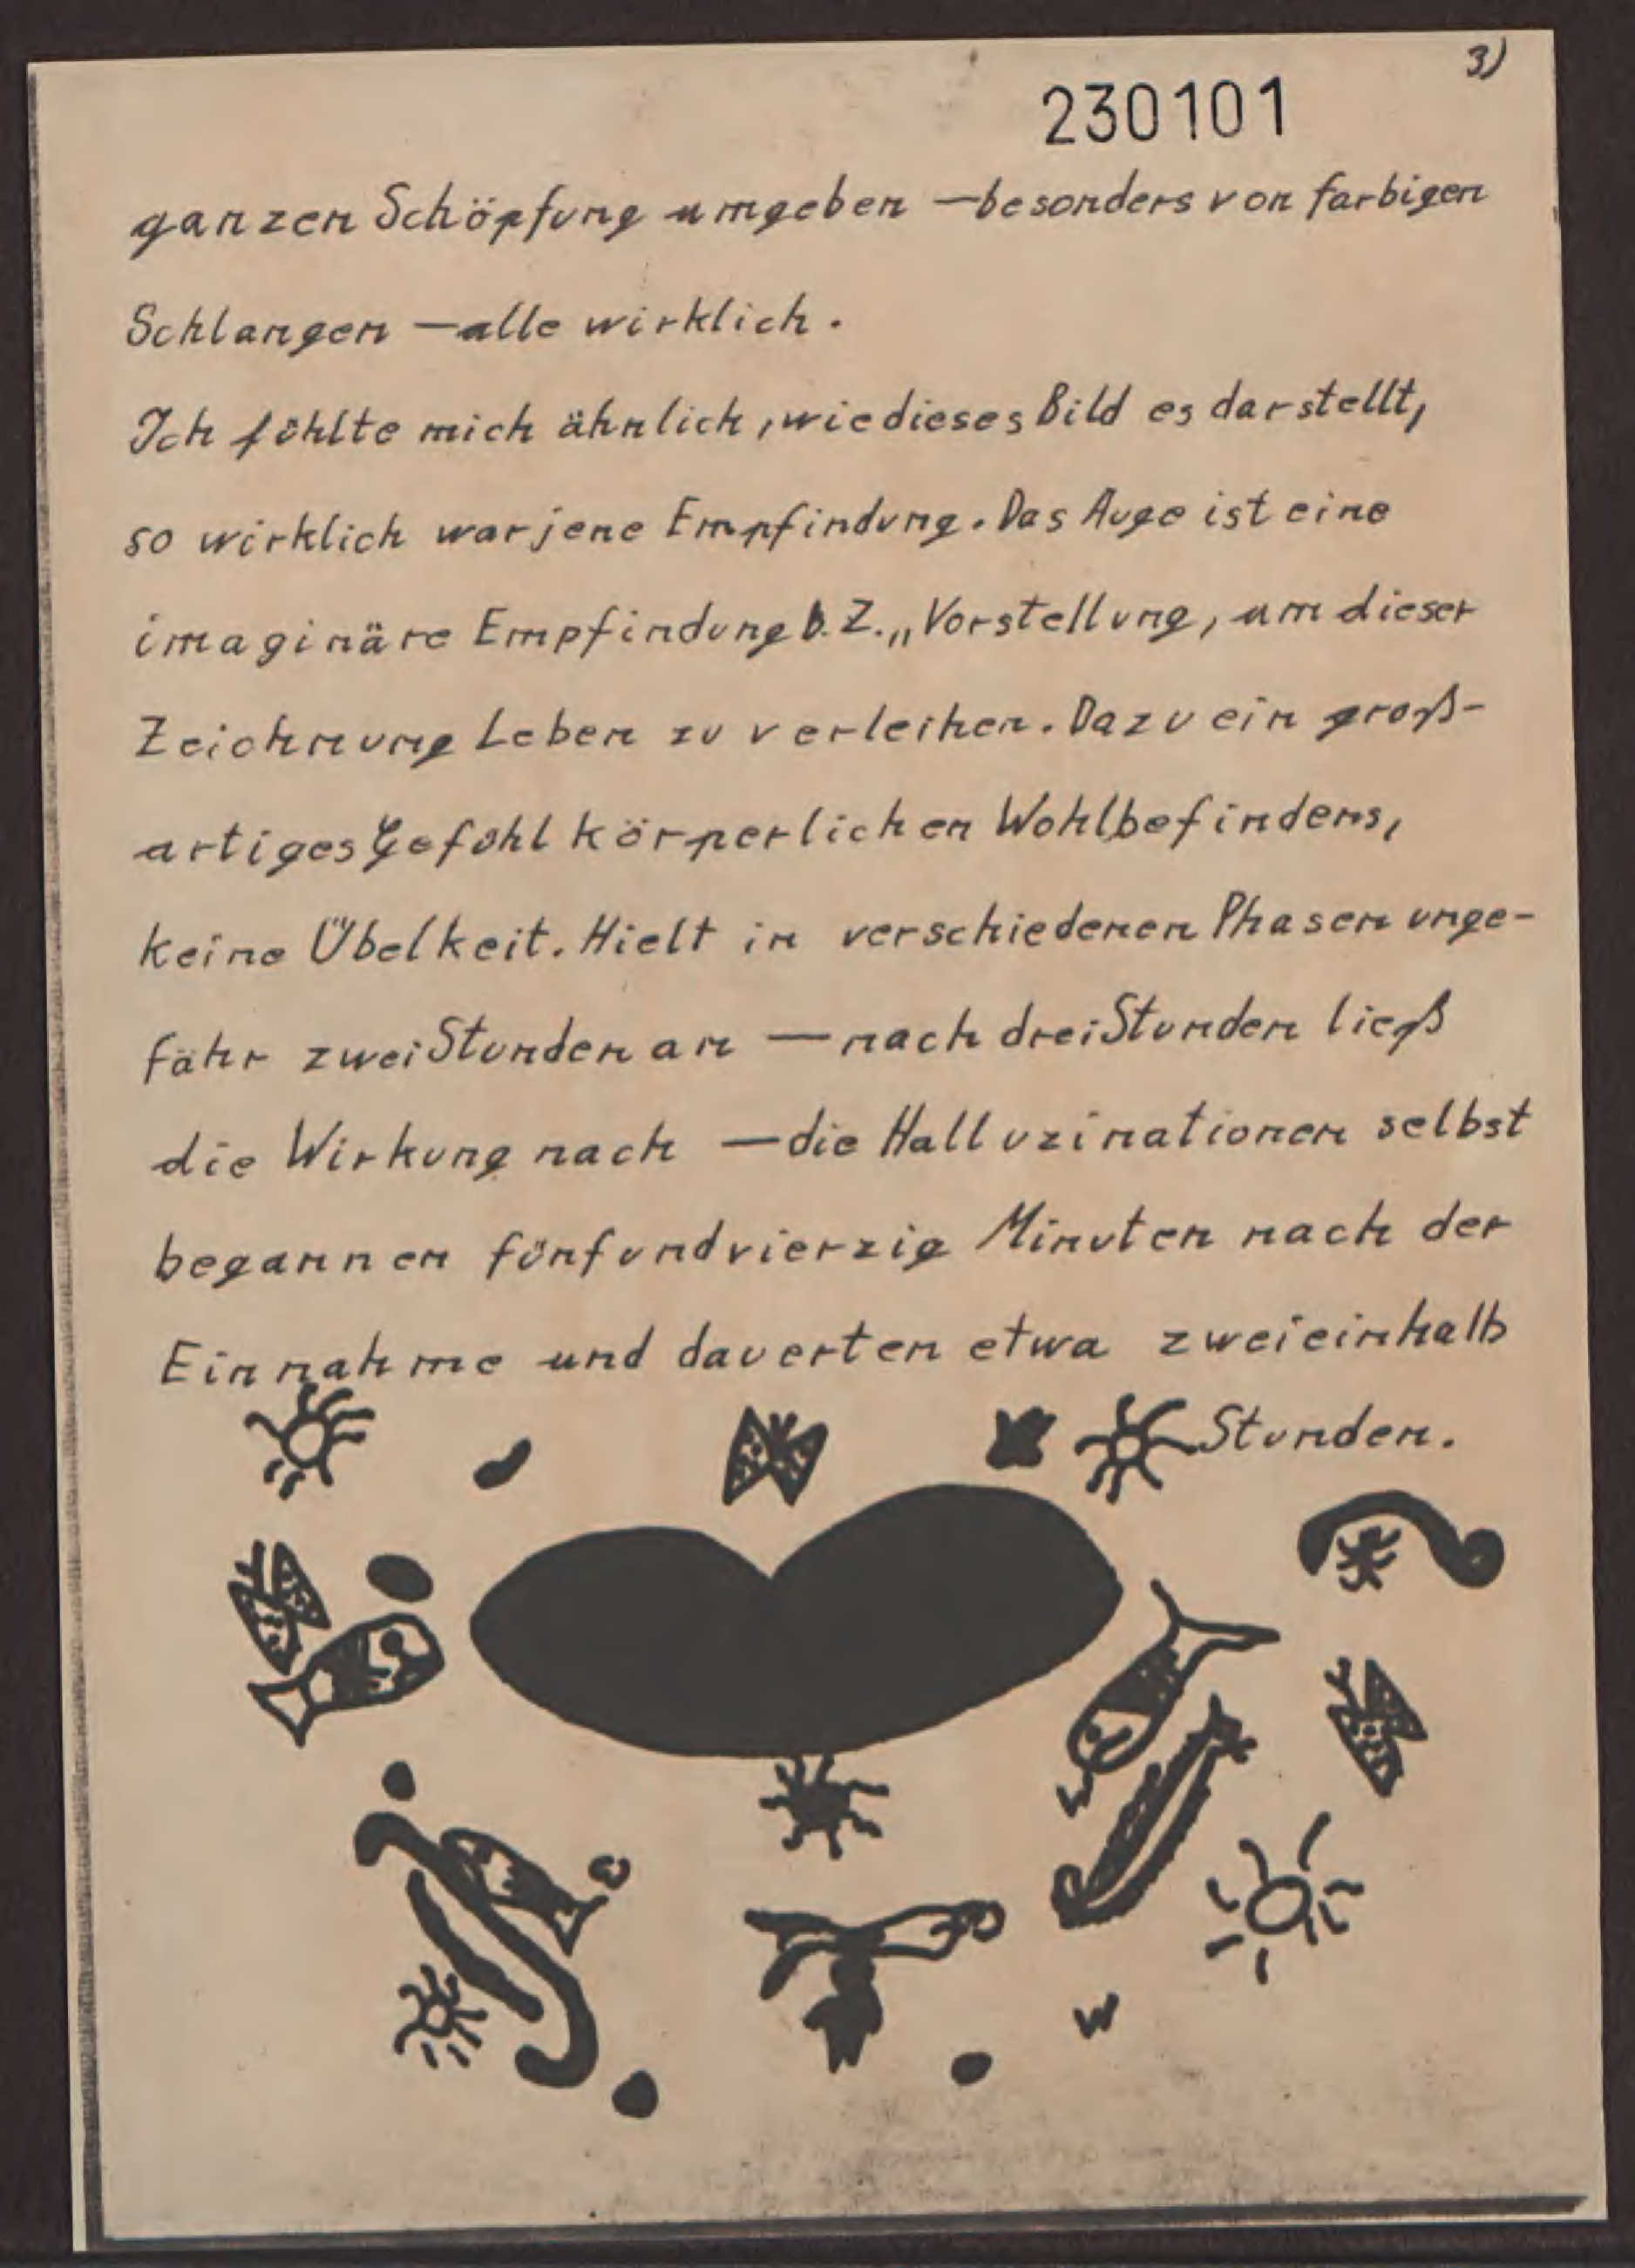 3)
230101
ganzen Schöpfung umgeben — besonders von farbigen
Schlangen — alle wirklich.
Ich fühlte mich ähnlich, wie dieses Bild es darstellt,
so wirklich war jene Empfindung. Das Auge ist eine
imaginäre Empfindung b. Z. „Vorstellung, um dieser
Zeichnung Leben zu verleihen. Dazu ein groß-
artiges Gefühl körperlichen Wohlbefindens,
keine Übelkeit. Hielt in verschiedenen Phasen unge-
fähr zwei Stunden an — nach drei Stunden ließ
die Wirkung nach — die Halluzinationen selbst
begannen fünfundvierzig Minuten nach der
Einnahme und dauerten etwa zweieinhalb
Stunden.